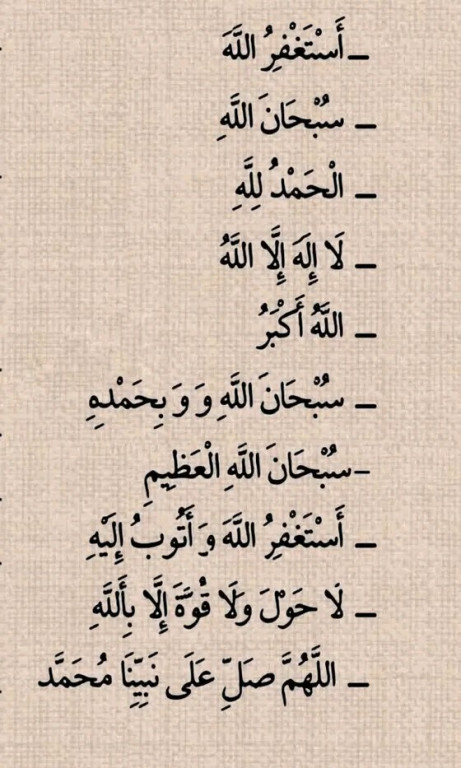 ـ أَسْتَغْفِرُ اللَّهَ
ـ سُبْحَانَ اللَّهِ
ـ الْحَمْدُ لِلَّهِ
ـ لَا إِلَهَ إِلَّا اللَّهُ
ـ اللَّهُ أَكْبَرُ
ـ سُبْحَانَ اللَّهِ وَ وَ بِحَمْدِهِ
-سُبْحَانَ اللَّهِ الْعَظِيمِ
ـ أَسْتَغْفِرُ اللَّهَ وَ أَتُوبُ إِلَيْهِ
ـ لَا حَوْلَ وَلَا قُوَّةَ إِلَّا بِأَللَّهِ
ـ اللَّهُمَّ صَلِّ عَلَى نَبِيِّنَا مُحَمَّد